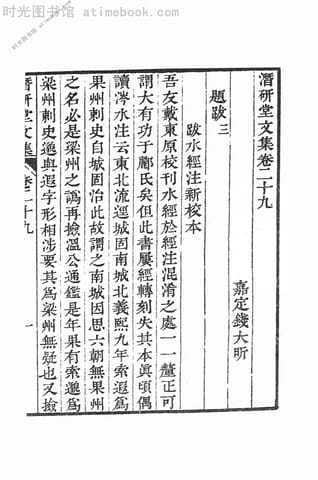 时光图书馆 - atimebook.com
潛研堂文集卷二十九
嘉定錢大昕
題跋三
跋水經注新校本
吾友戴東原校刊水經於經注混淆之處一一釐正可
謂大有功于酈氏矣但此書屢經轉刻失其本眞頃偶
讀涔水注云東北流逕城固南城北義熙九年索遐爲
果州刺史自城固治此故謂之南城因思六朝無果州
之名必是梁州之譌再檢溫公通鑑是年果有索邈爲
梁州刺史邈與遐字形相涉要其爲梁州無疑也又撿
潛研堂文集
卷二十九
一